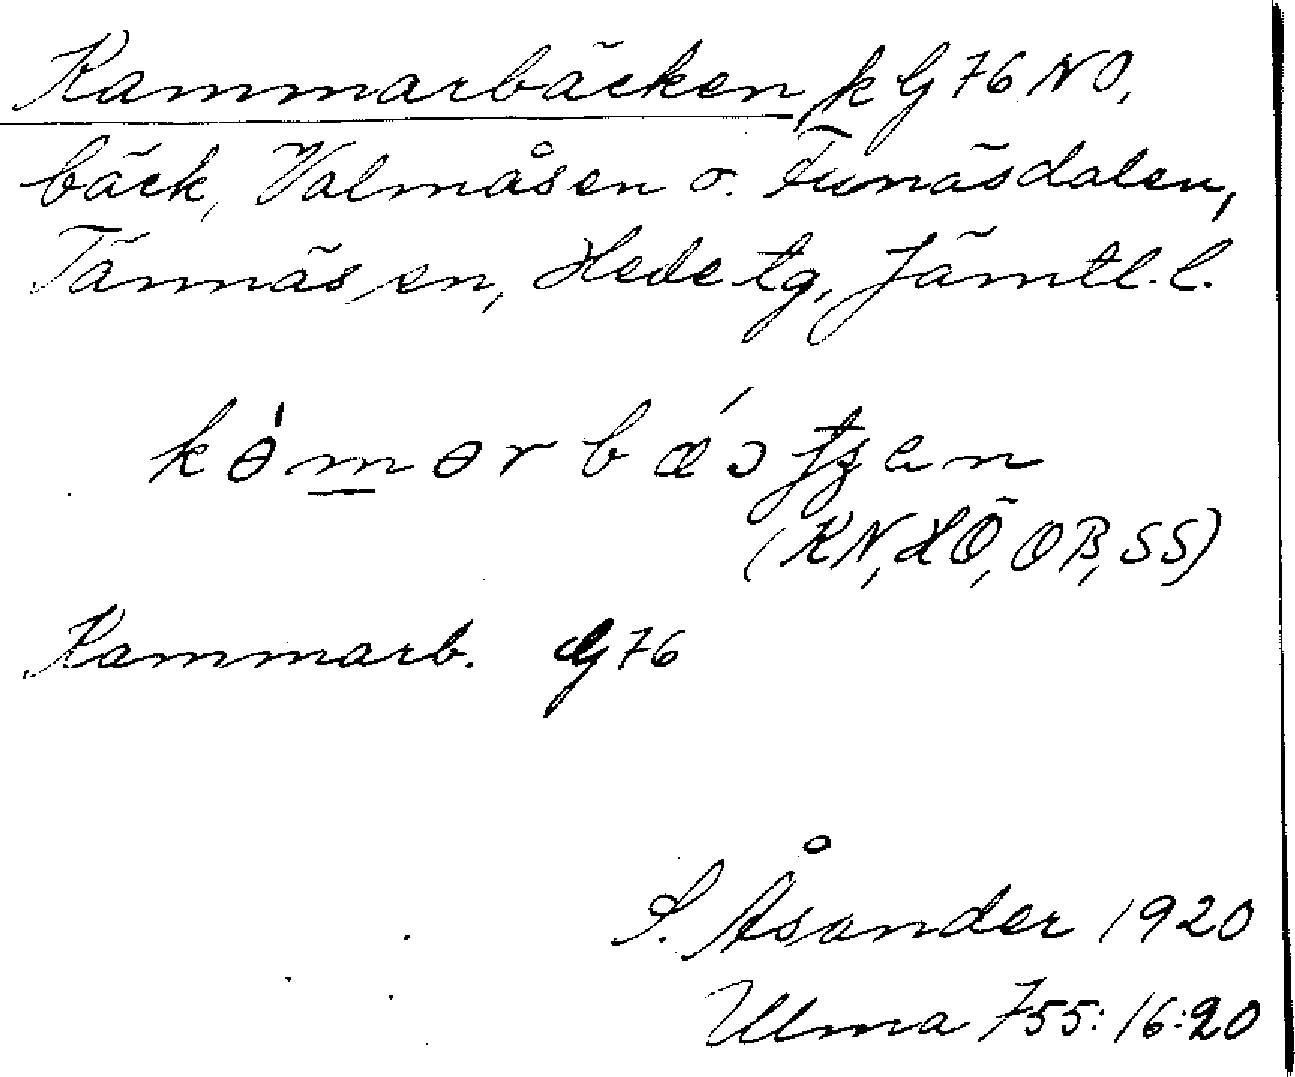 Kammarbäcken k G 76 NO,
bäck, Valmåsen o. Funäsdalen,
Tännäs sn, Hede tg, Jämtl. l.
(KN, HÖ, OB, SS)
Kammarb. G 76
S. Åsander 1920
Ulma 755:16:20